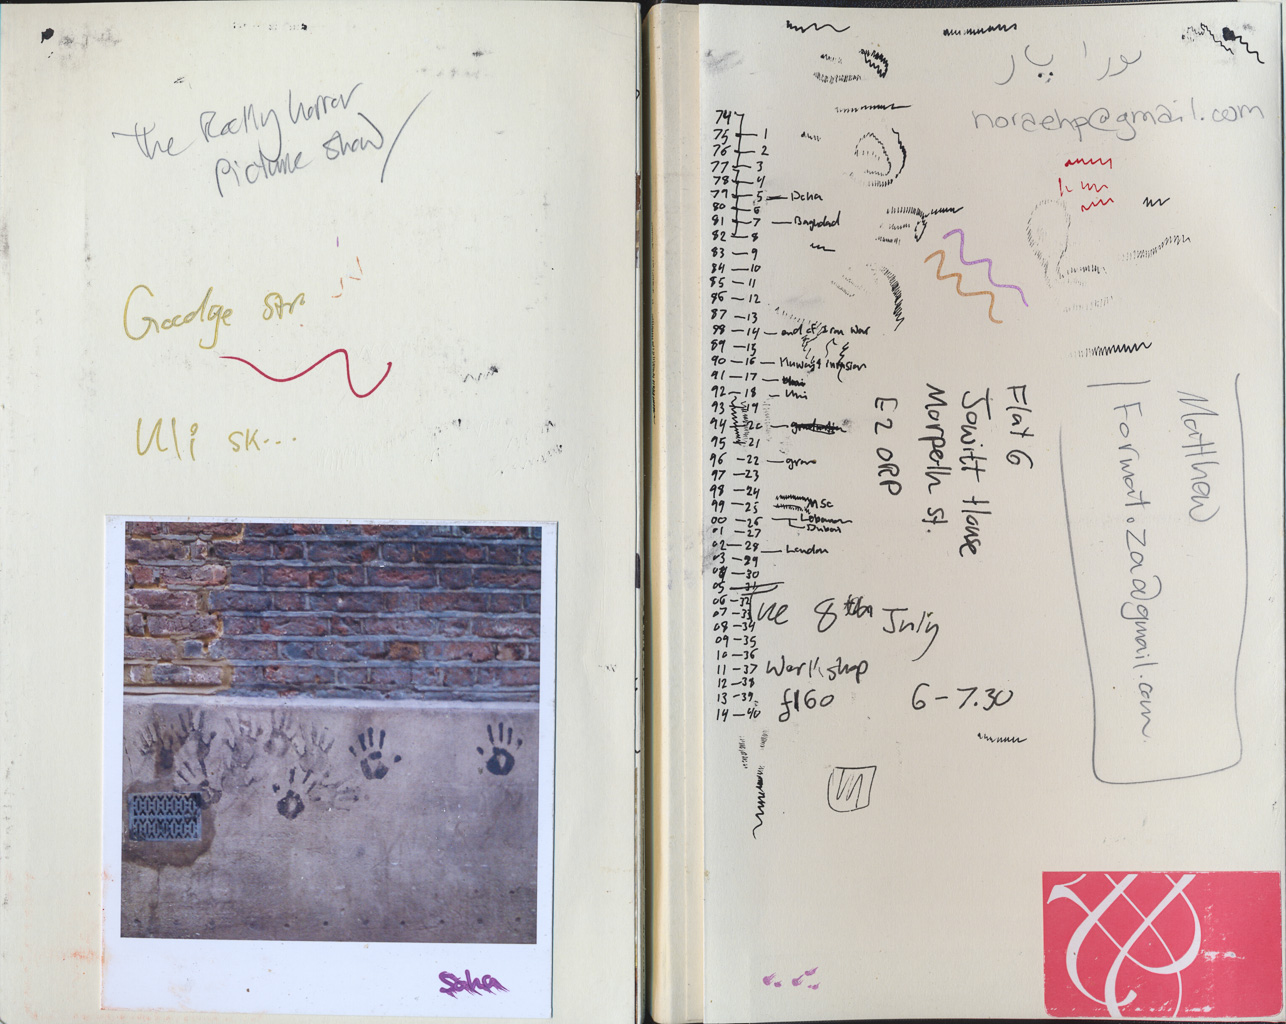 the Rocky horror
picture show
Goodge str
Uli sk...
Saha
نورا پار
noraehp@gmail.com
74
75 1
76 2
77 3
78 4
79 5 Doha
80 6
81 7 Baghdad
82 8
83 9
84 10
85 11
86 12
87 13
88 14 end of Iran War
89 15
90 16 Kuwait invasion
91 17
92 18 Uni
93 19
94 20
95 21
96 22
97 23
98 24
99 25 MSc
00 26 Lebanon
01 27 Dubai
02 28 London
03 29
30
05 31
06 32
07 33
08 34
09 35
10 36
11 37
12 38
13 39
14 40
Flat 6
Jowitt House
Morpeth st.
E2 0RP
Matthew
Format.za@gmail.com
8th July
Workshop
£160 6-7.30